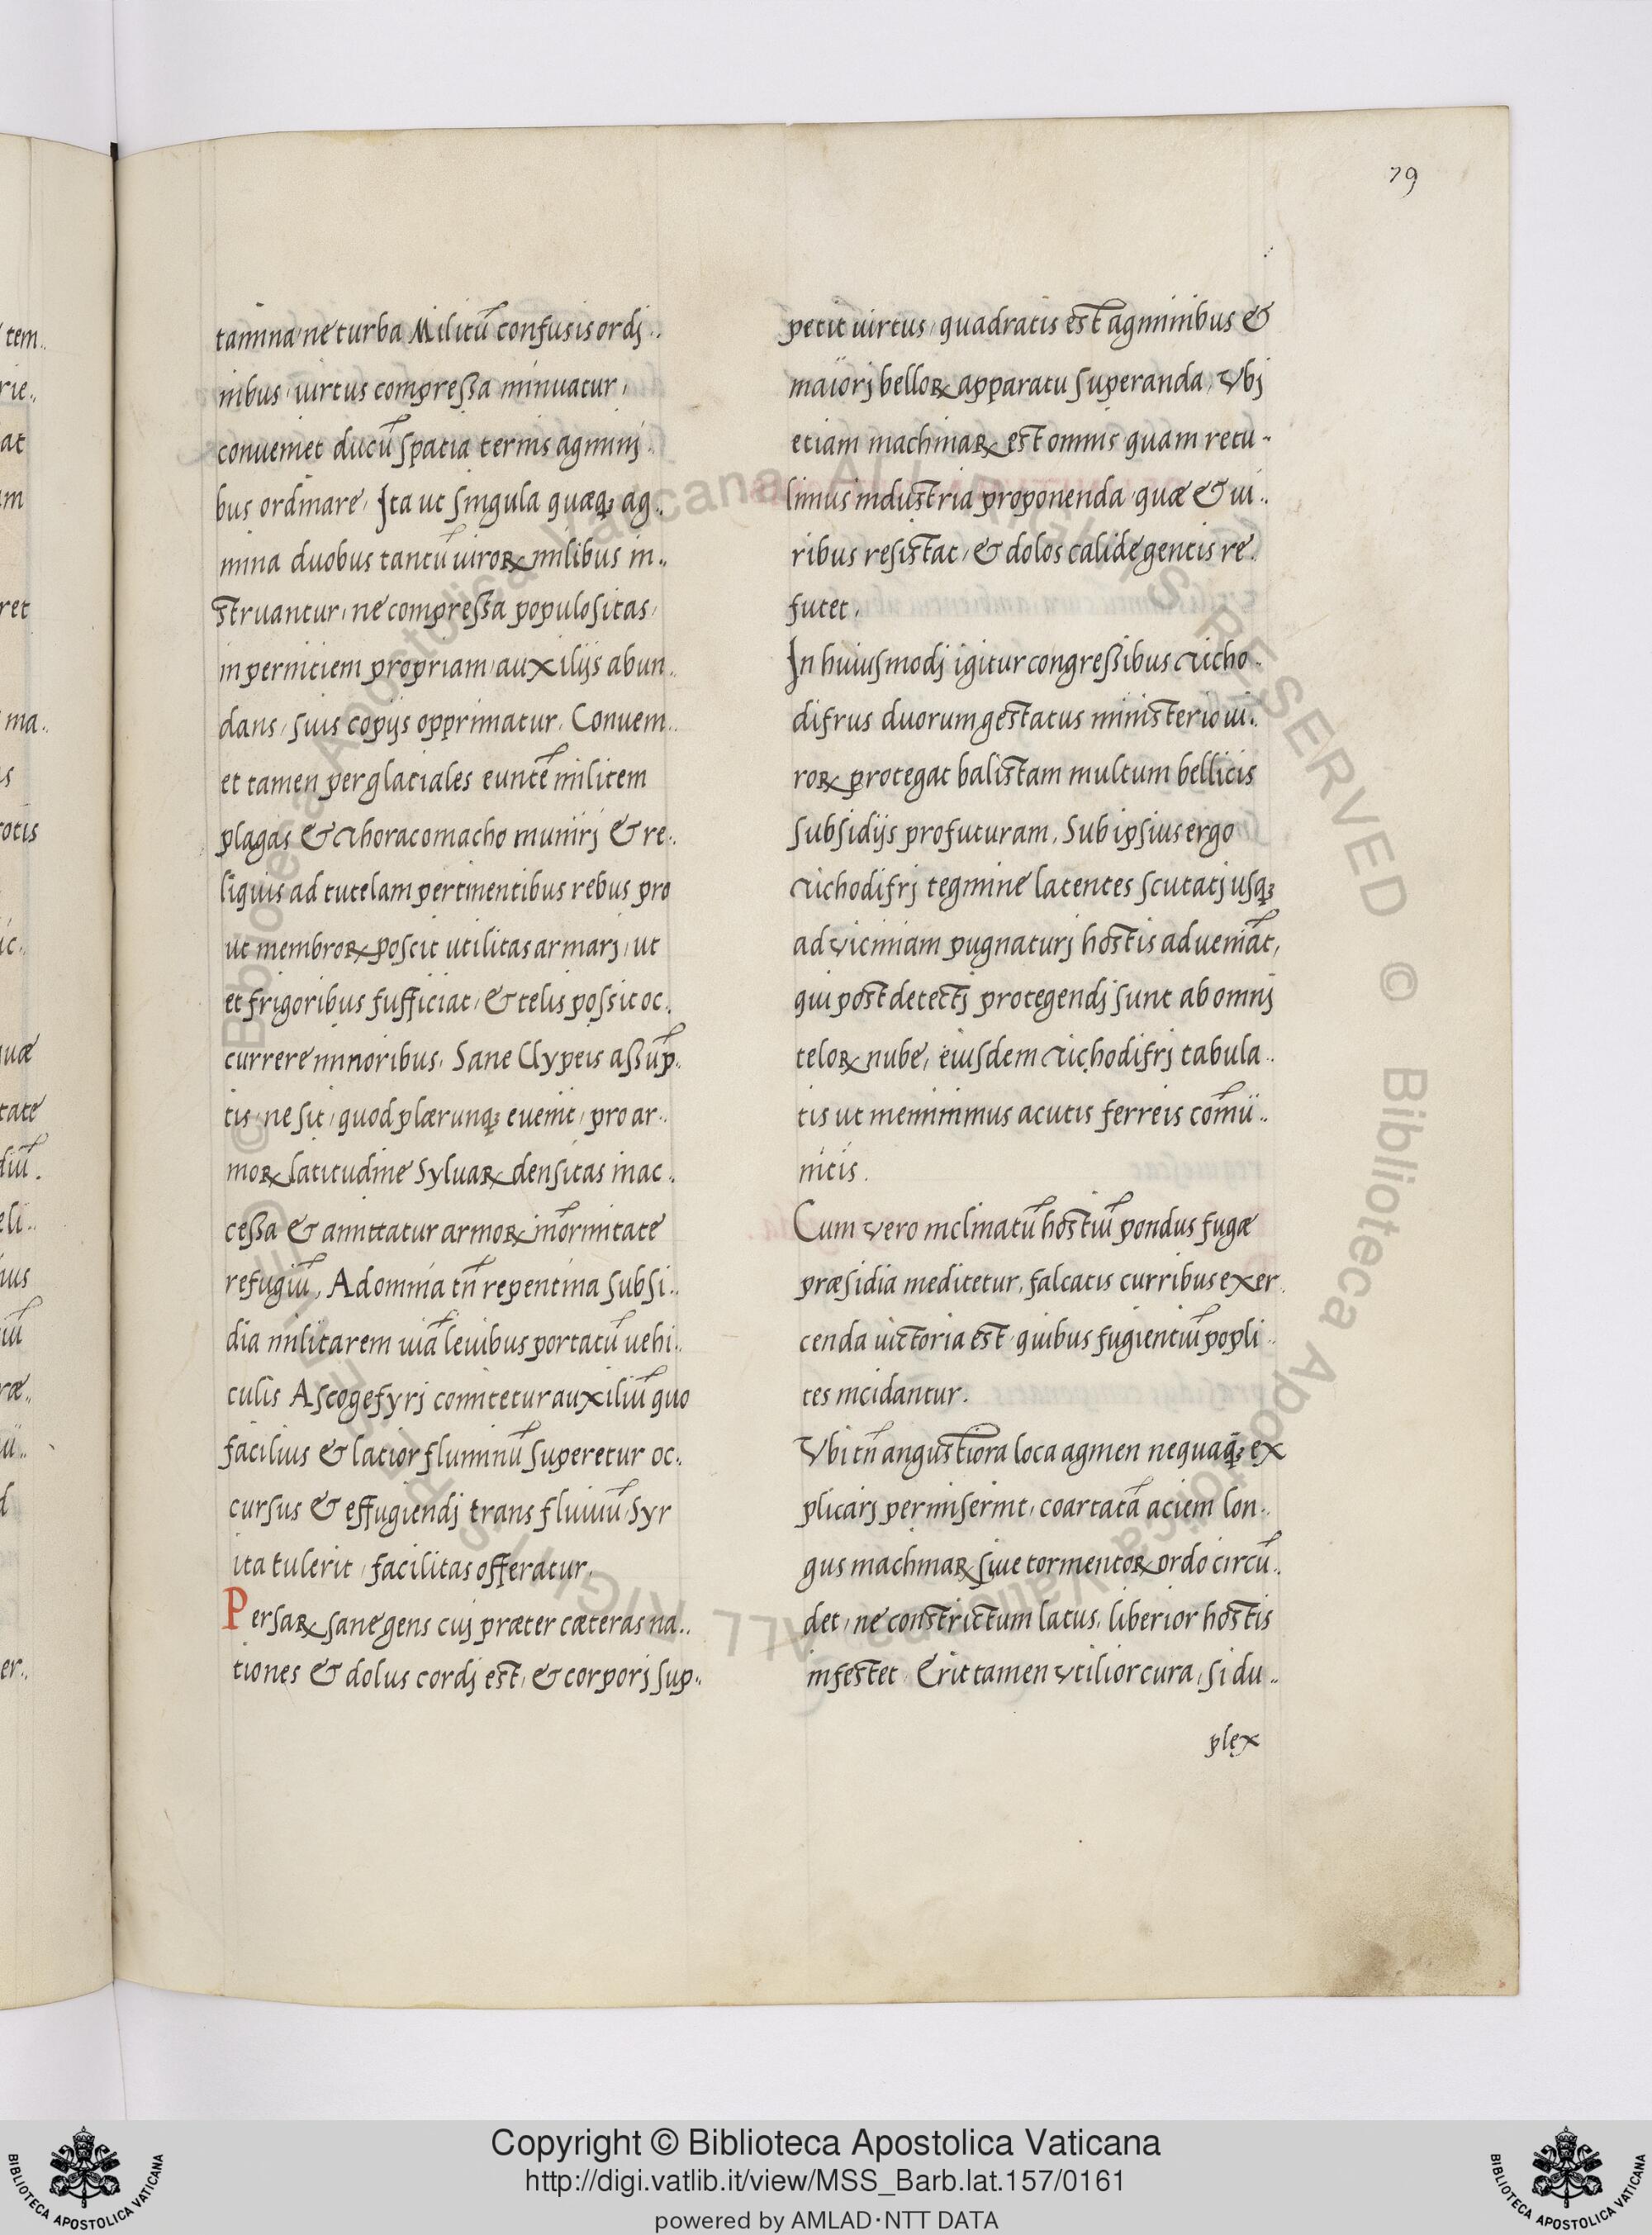 79
tamina ne turba Militū confusis ordj..
nibus, uirtus compreßa minuatur,
conueniet ducū spatia ternis agminj.
bus ordinare, Ita ut singula quæqꝫ ag..
mina duobus tantū uiroꝝ milibus in..
struantur, ne compreßa populositas,
in pernitiem propriam, auxilijs abun..
dans, suis copijs opprimatur. Conueni..
et tamen per glaciales euntē militem
plagas & thoracomacho munirj & re..
liquis ad tutelam pertinentibus rebus pro
ut membroꝝ poscit utilitas armarj, ut
et frigoribus sufficiat, & telis possit oc..
currere minoribus, Sane Clypeis assūp..
tis, ne sit, quod plærunqꝫ euenit, pro ar..
moꝝ latitudine Syluaꝝ densitas inac..
ceßa & amittatur armoꝝ inormitate
refugiū, Ad omnia tn̄ repentina subsi..
dia militarem uiā leuibus portatū uehi..
culis Ascogefyrj comitetur auxiliū quo
facilius & latior fluminū superetur oc..
cursus & effugiendj trans fluuiū, Syr
ita tulerit, facilitas offeratur.
Persaꝝ sane gens cuj præter cæteras na..
tiones & dolus cordj est, & corporj sup..
petit uirtus, quadratis est agminibus &
maiorj belloꝝ apparatu superanda, Vbj
etiam machinaꝝ est omnis quam retu-
limus industria proponenda quæ & ui..
ribus resistat, & dolos calide gentis re.
futet.
In huiusmodj igitur congreßibus ticho..
difrus duorum gestatus ministerio ui..
roꝝ protegat balistam multum bellicis
subsidijs profuturam. Sub ipsius ergo
tichodifrj tegmine latentes scutatj usqꝫ
ad viciniam pugnaturj hostis adueniāt,
qui post detectj protegendj sunt ab omnj
teloꝝ nube, eiusdem tichodifrj tabula..
tis ut meminimus acutis ferreis comū..
nitis.
Cum vero inclinatū hostiū pondus fugæ
præsidia meditetur, falcatis curribus exer
cenda uictoria est, quibus fugientiū popli..
tes incidantur.
Vbi tn̄ angustiora loca agmen nequaq̄ꝫ ex
plicarj permiserint, coartatā aciem lon..
gus machinaꝝ siue tormentoꝝ ordo circū..
det, ne constrictum latus, liberior hostis
infestet. Erit tamen vtilior cura, si du..
plex
Copyright © Biblioteca Apostolica Vaticana
http://digi.vatlib.it/view/MSS_Barb.lat.157/0161
powered by AMLAD·NTT DATA
BIBLIOTECA APOSTOLICA VATICANA
BIBLIOTECA APOSTOLICA VATICANA